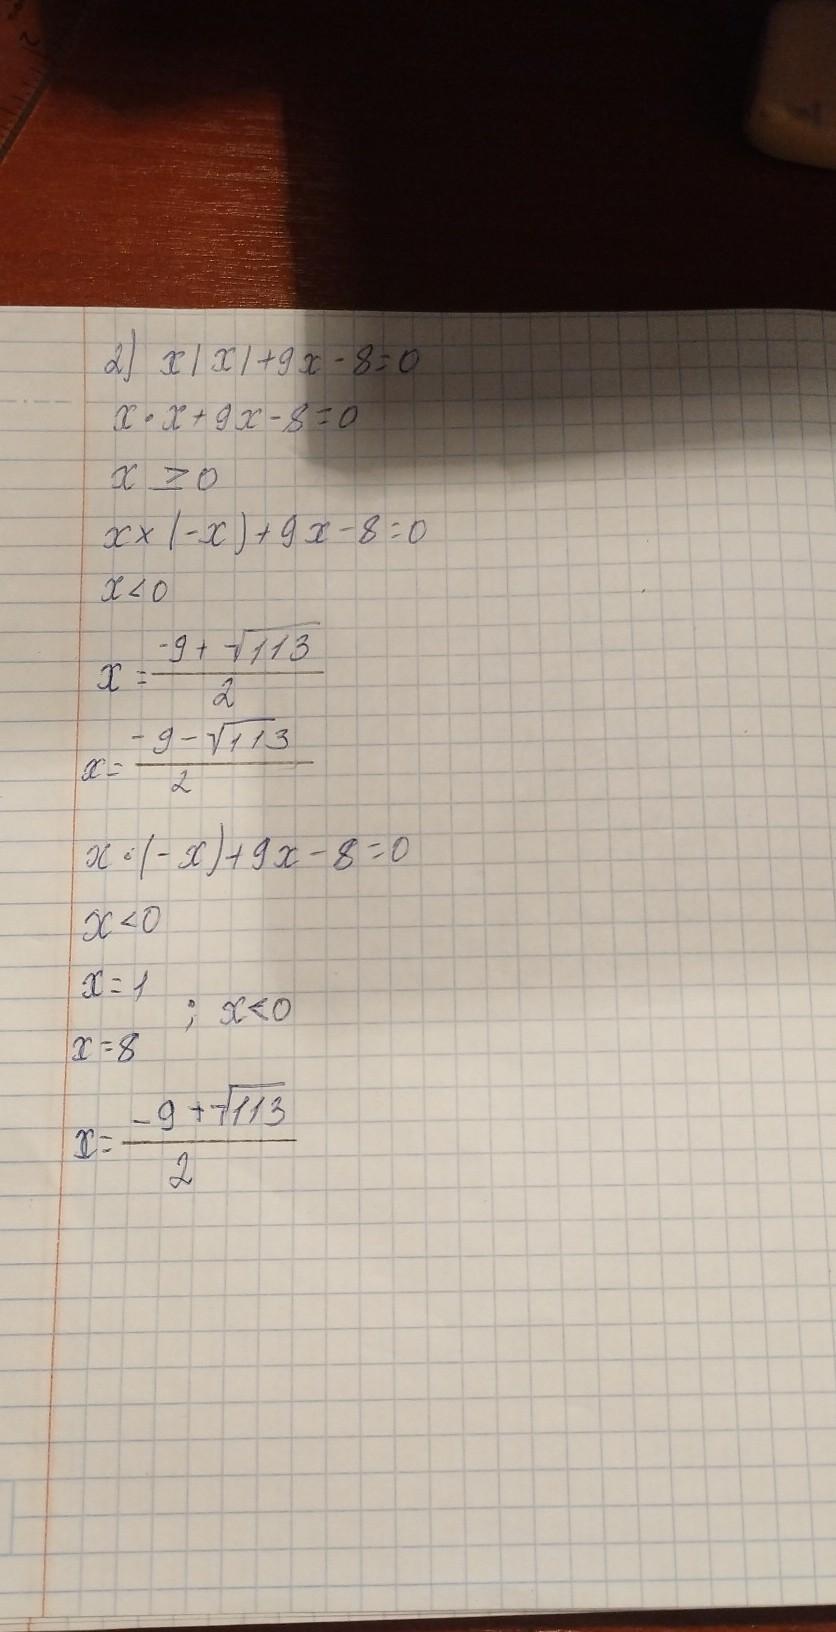 2) x|x|+9x-8=0
x·x+9x-8=0
x ≥0
x×(-x)+9x-8=0
x<0
x=(-9+√113)/2
x=(-9-√113)/2
x·(-x)+9x-8=0
x<0
x=1
; x<0
x=8
x=(-9+√113)/2